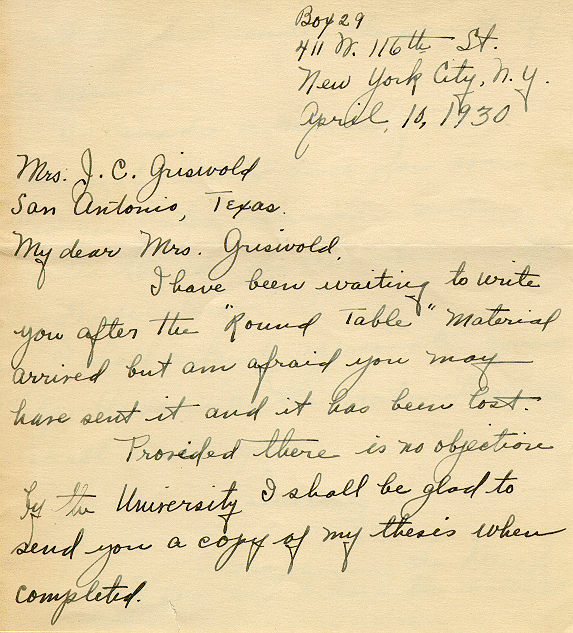 Box 29
411 W. 116th St.
New York City, N.Y.
April, 10, 1930
Mrs. J. C. Griswold
San Antonio, Texas.
My dear Mrs. Griswold,
I have been waiting to write
you after the "Round Table" Material
arrived but am afraid you may
have sent it and it has been lost.
Provided there is no objection
by the University I shall be glad to
send you a copy of my thesis when
completed.